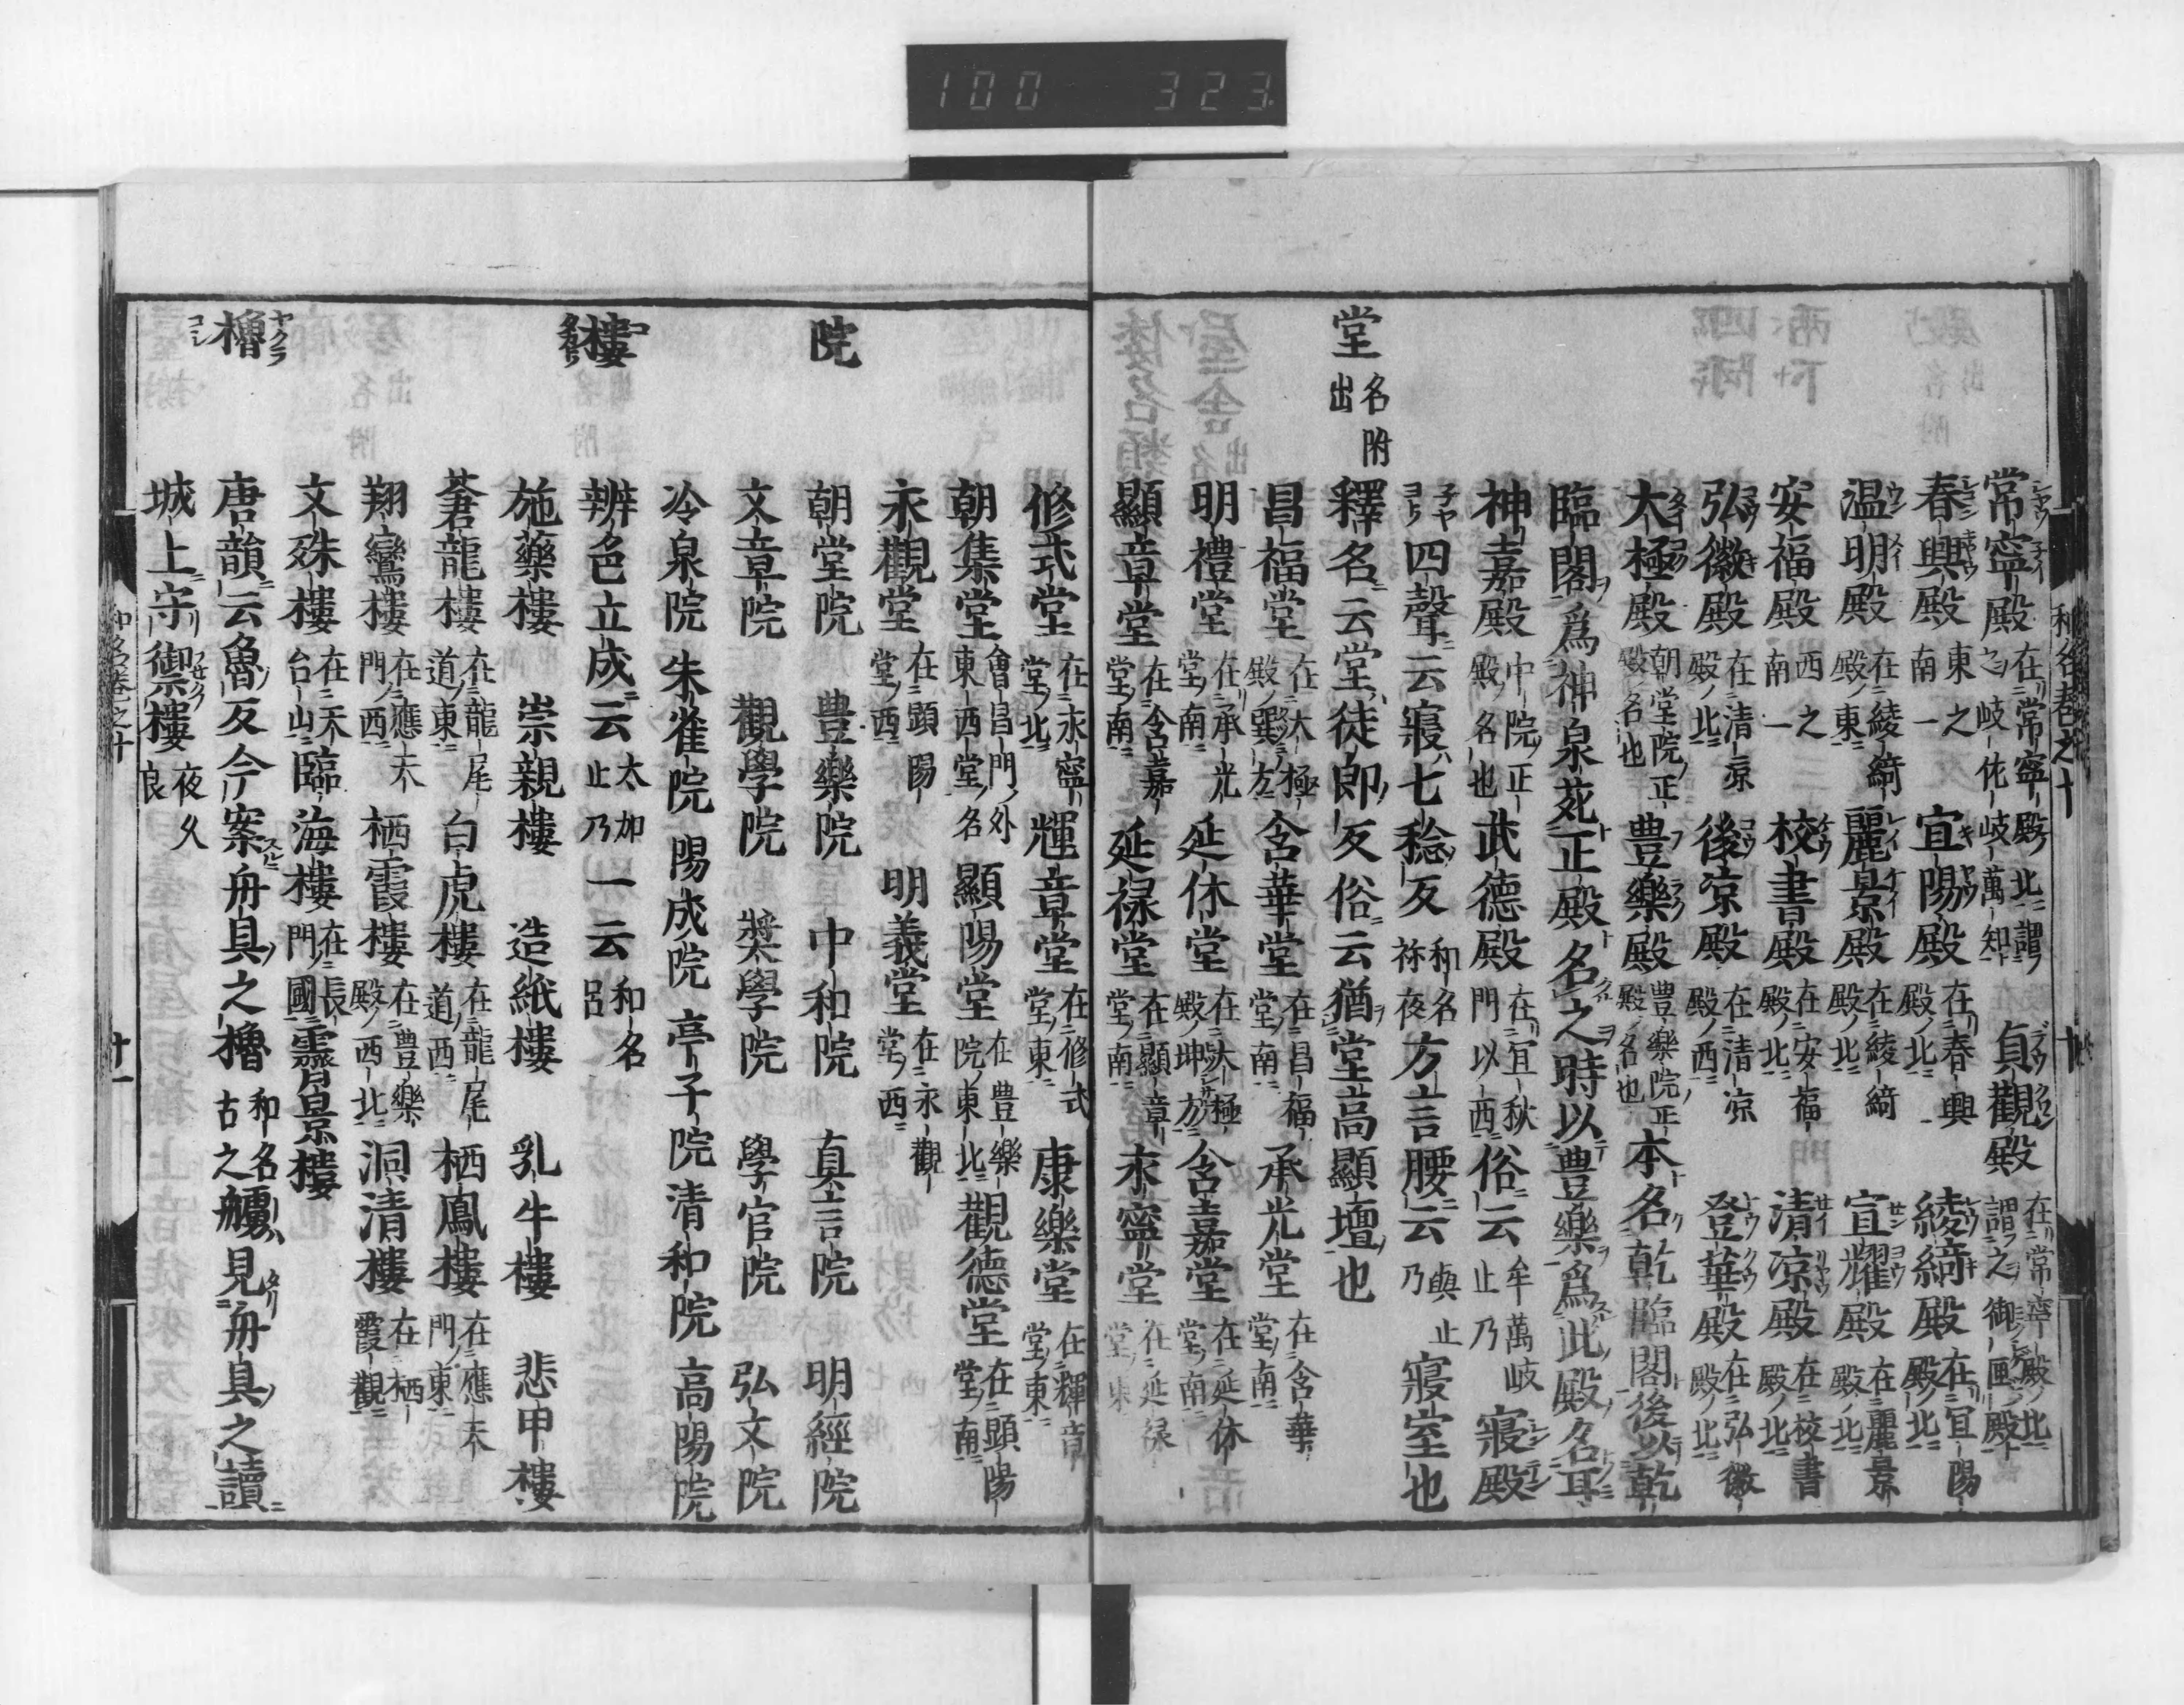 100 323
常寧殿 在常寧殿北謂之岐佐岐萬知 貞觀殿 在常寧殿北謂之御匣殿
春興殿 東之南一 宜陽殿 在春興殿北 綾綺殿 在宜陽殿北
温明殿 在綾綺殿東 麗景殿 在綾綺殿北 宣耀殿 在麗景殿北
安福殿 西之南一 校書殿 在安福殿北 清凉殿 在校書殿北
弘徽殿 在清凉殿北 後凉殿 在清凉殿西 登華殿 在弘徽殿北
大極殿 朝堂院正殿名也 豊樂殿 豊樂院正殿名也 本名乾臨閣後以乾
臨閣爲神泉苑正殿名之時以豊樂爲此殿名耳
神嘉殿 中院正殿名也 武德殿 在宜秋門以西 俗云 牟萬岐止乃 寢殿
四聲云寢七稔反 和名祢夜 方言腰云 與止乃 寢室也
堂 名附出 釋名云堂徒郎反俗云猶堂高顯壇也
昌福堂 在大極殿巽左 含華堂 在昌福堂南 承光堂 在含華堂南
明禮堂 在承光堂南 延休堂 在大極殿坤方 含嘉堂 在延休堂南
顯章堂 在含嘉堂南 延禄堂 在顯章堂南 永寧堂 在延禄堂
修式堂 在永寧堂北 輝章堂 在修式堂東 康樂堂 在輝章堂東
朝集堂 會昌門外東西堂名 顯陽堂 在豊樂院東北 觀德堂 在顯陽堂南
永觀堂 在顯陽堂西 明義堂 在永觀堂西
院 朝堂院 豊樂院 中和院 真言院 明經院
文章院 觀學院 奬學院 學官院 弘文院
冷泉院 朱雀院 陽成院 亭子院 清和院 高陽院
樓 辨色立成云 太加止乃 一云 和名呂
施藥樓 崇親樓 造紙樓 乳牛樓 悲田樓
蒼龍樓 在龍尾道東 白虎樓 在龍尾道西 栖鳳樓 在應天門東
翔鸞樓 在應天門西 栖霞樓 在豊樂殿西北 洞清樓 在栖霞觀
文殊樓 在天台山 臨海樓 在長門國 霽景樓
櫓 唐韻云魯反今案舟具之櫓 和名古之艣見舟具之讀
城上守禦樓 夜久良
和名卷之十 十一